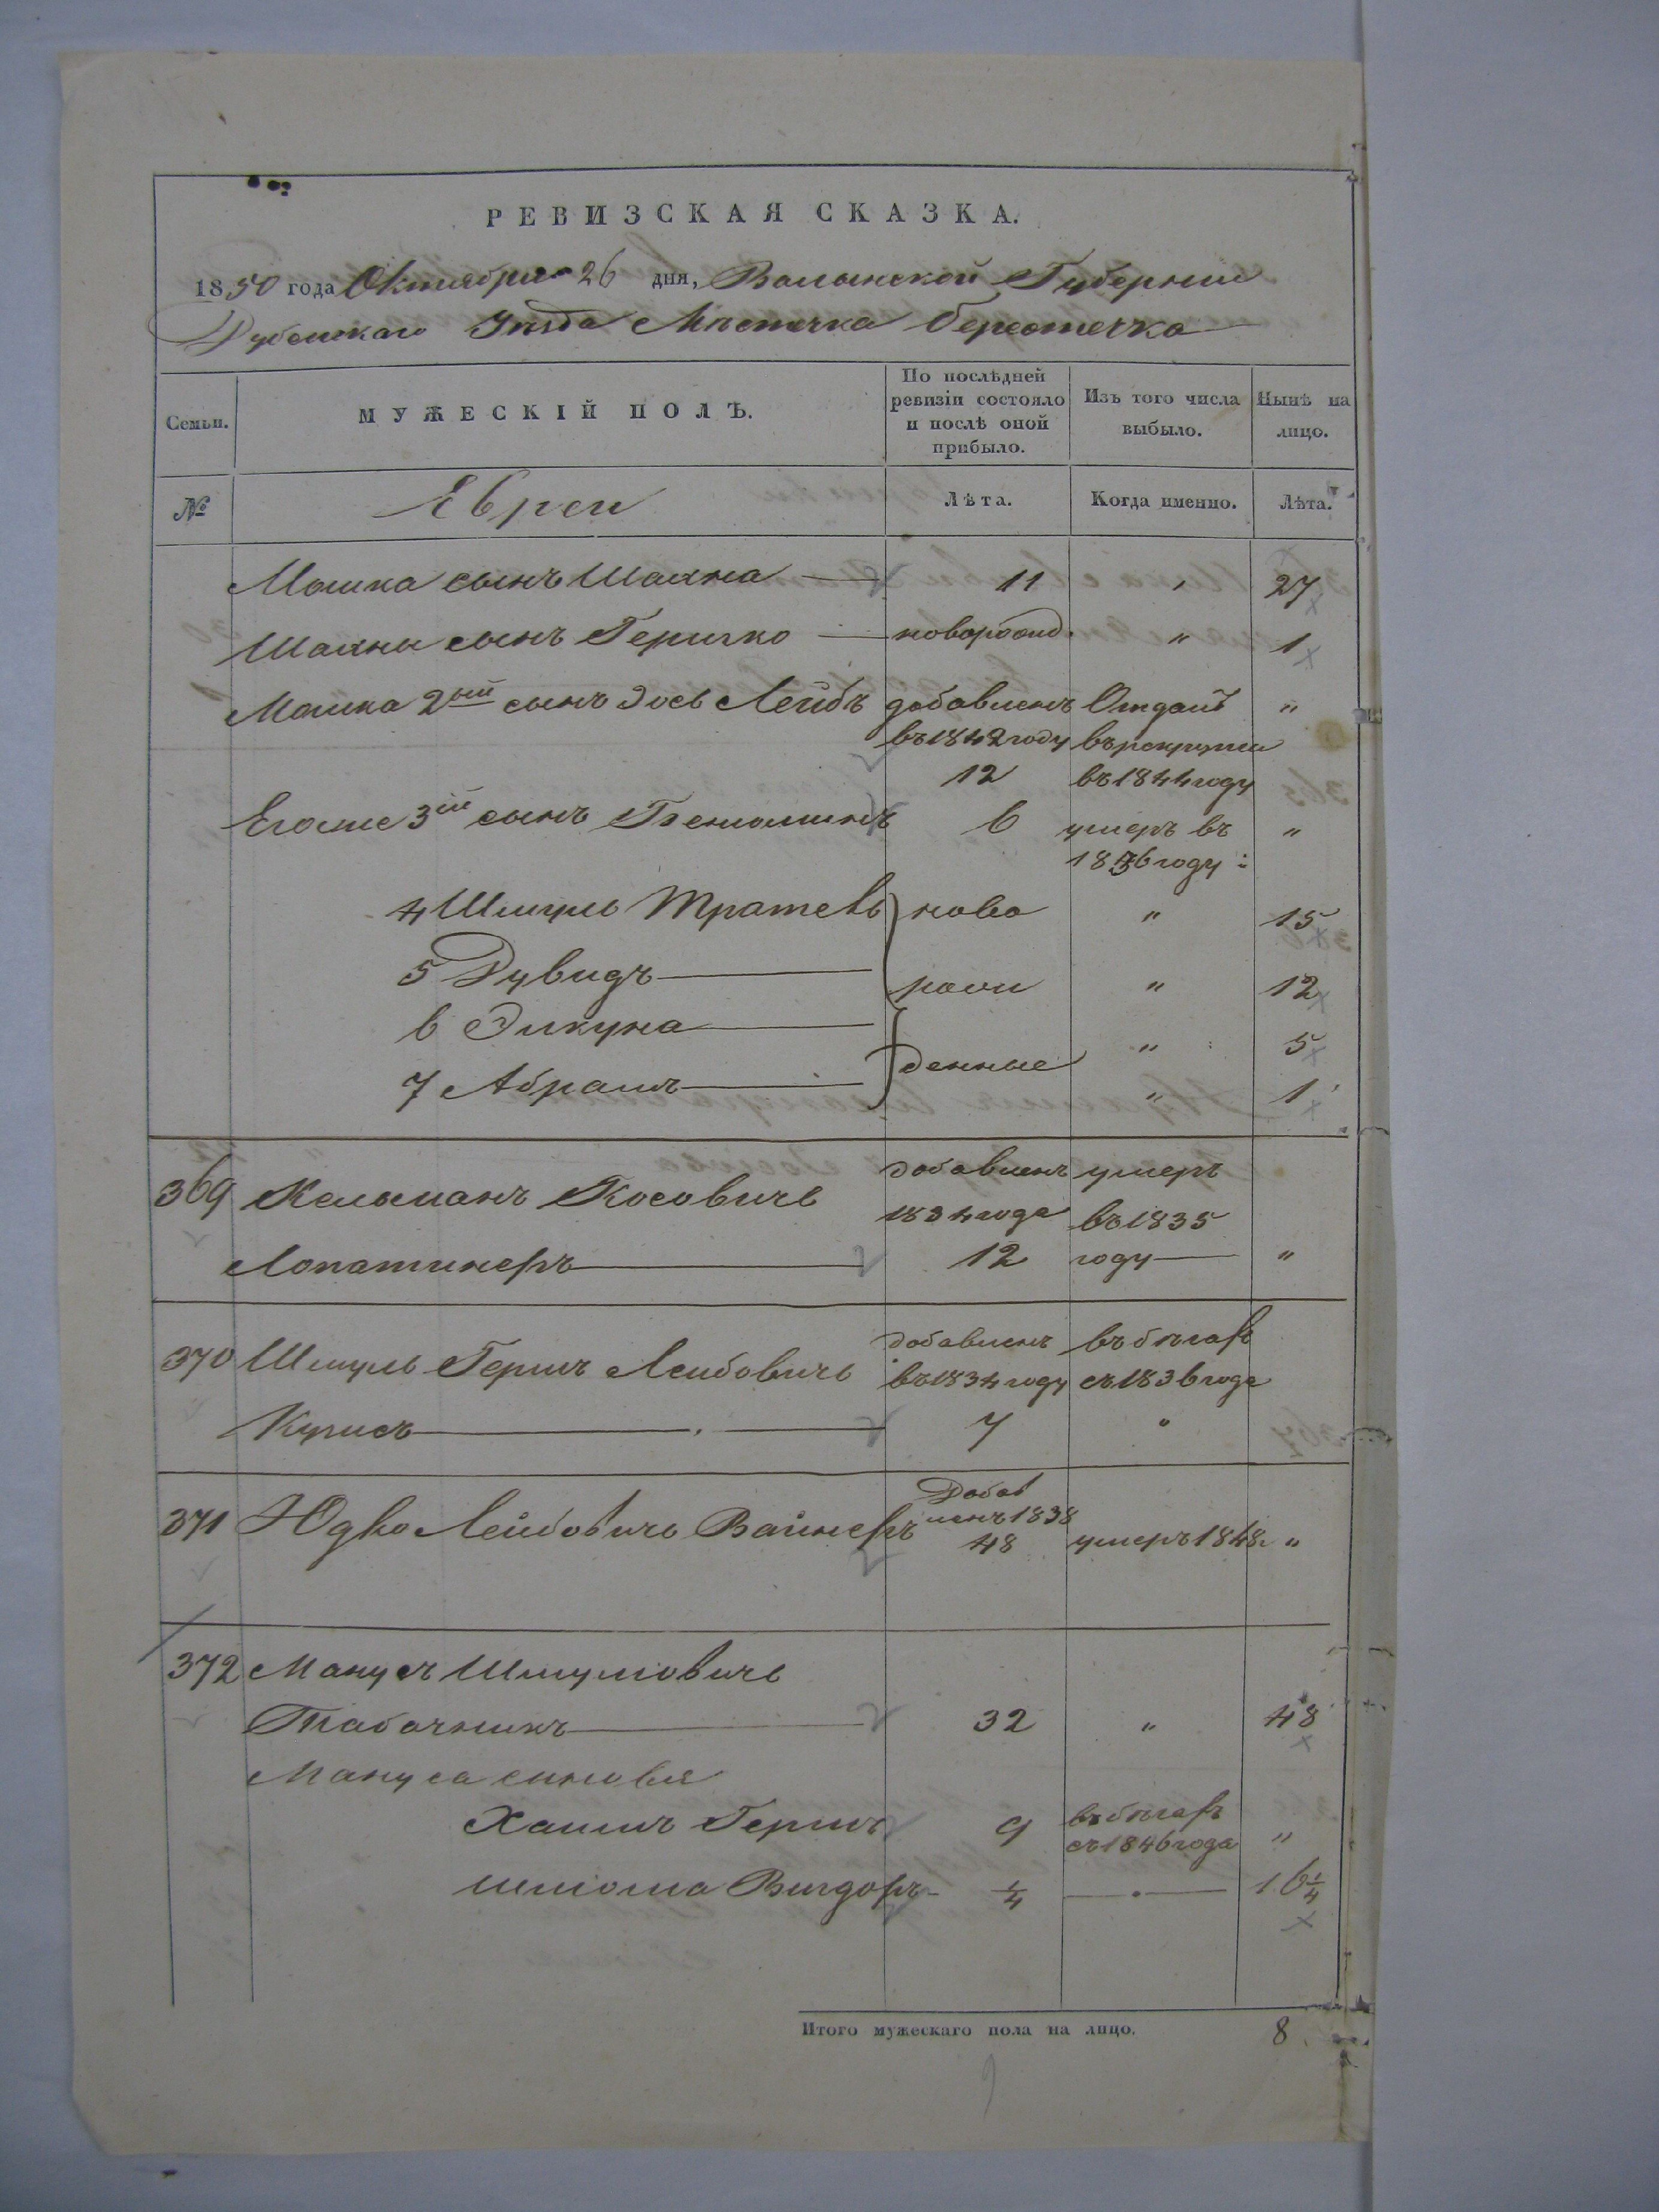 РЕВИЗСКАЯ СКАЗКА.
1850 года Октября 26 дня, Волынской Губернии
Дубенскаго Уезда Местечка Берестечка
Семьи.
МУЖЕСКІЙ ПОЛЪ.
По послѣдней ревизіи состояло и послѣ оной прибыло.
Изъ того числа выбыло.
Нынѣ на лицо.
№ Евреи Лѣта. Когда именно. Лѣта.
Мошка сынъ Шаяна — 11 " 27
Шаяна сынъ Гершко — новорожд. " 1
Мошка 2ый сынъ Іось Лейбъ добавленъ Отданъ "
въ 1842 году въ рекруты
12 въ 1844 году
Егоже 3ій сынъ Беньоминъ 6 умеръ въ "
1836 году
4 Шмуль ново " 15
5 Дувидъ — рож " 12
6 Элкуна — " 5
денные
7 Абрамъ — " 1
добавленъ умеръ
369 Кельманъ Іосовичь
1834 года въ 1835
Лопатинеръ — 12 году — "
добавленъ въ бѣгахъ
370 Шмуль Гершъ Лейбовичь въ 1834 году съ 1836 года
Купис — 7 "
Добав
371 Юдко Лейбовичь Вайнеръ ленъ 1838
48 умеръ 1848 "
372 Манусъ Шмуловичь
Табачникъ — 32 " 48
Мануса сыновья
Хаимъ Гершъ 9 въ бѣгахъ
съ 1846 года "
Шлиома Вигдоръ — ¼ — . — 16¼
Итого мужескаго пола на лицо. 8.